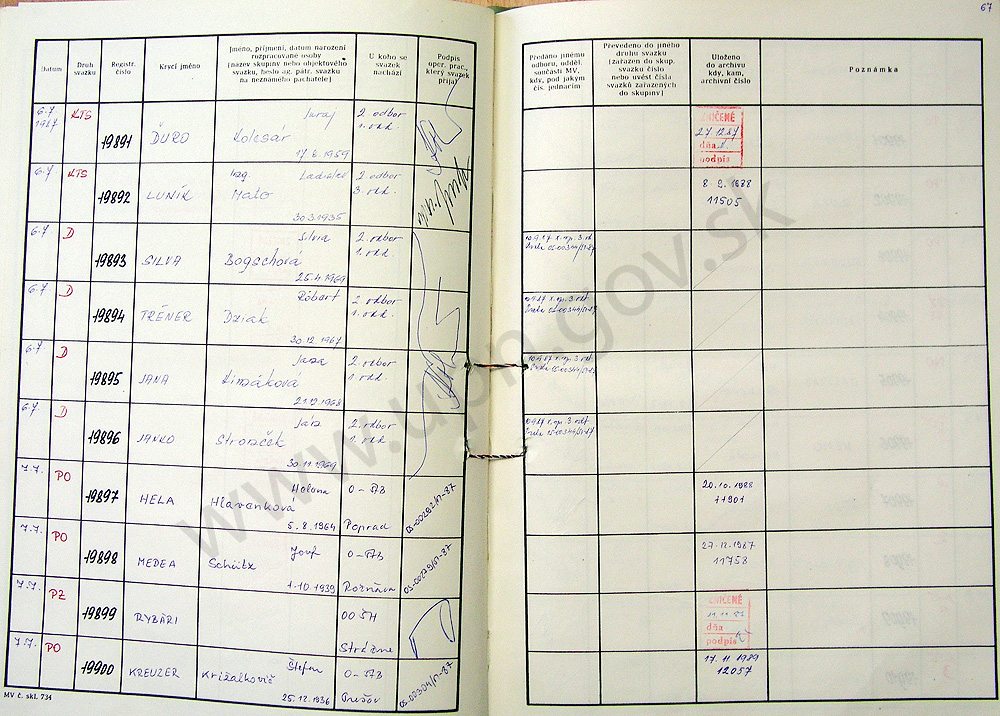 67
Datum
Druh svazku
Registr. číslo
Krycí jméno
Jméno, příjmení, datum narození
rozpracované osoby
(název skupiny nebo objektového
svazku, heslo ag. pátr. svazku
na neznámého pachatele)
U koho se
svazek
nachází
Podpis
oper. prac.,
který svazek
přijal
Předáno jinému
odboru, odděl.
součásti MV,
kdy, pod jakým
čís. jednacím
Převedeno do jiného
druhu svazku
(zařazen do skup.
svazku číslo
nebo uvést čísla
svazků zařazených
do skupiny)
Uloženo
do archivu
kdy, kam,
archivní číslo
Poznámka
6.7. 1987 KTS 19891 ĎURO Juraj
Kolesár
17.6.1959
2. odbor
1. odd.
ZNIČENÉ
27.12.87
dňa
podpis
6.7 KTS 19892 LUNÍK Ing. Ladislav
Mato
30.3.1935
2. odbor
3. odd.
8.2.1988
11505
6.7. D 19893 SILVA Silvia
Bogschová
25.4.1969
2. odbor
1. odd.
6.7. D 19894 TRÉNER Róbert
Dziak
30.12.1967
2. odbor
1. odd.
6.7 D 19895 JANA Jana
Rimáková
21.12.1968
2. odbor
1. odd.
6.7. D 19896 JANKO Ján
30.11.1969
2. odbor
1. odd.
7.7. PO 19897 HELA Helena
Hlavenková
5.8.1964
0-ŠTB
Poprad
OS-00282/A-87
20.10.1988
11901
7.7. PO 19898 MEDEA Jozef
Schütz
1.10.1939
0-ŠTB
Rožňava
OS-00279/A-87
27.12.1987
11758
7.7. PZ 19899 RYBÁRI
OO ŠH
Strážne
ZNIČENÉ
dňa
podpis
7.7. PO 19900 KREUZER Štefan
Križalkovič
25.12.1936
0-ŠTB
Prešov
OS-00304/A-87
17.11.1989
12057
MV č. skl. 734
www.upn.gov.sk